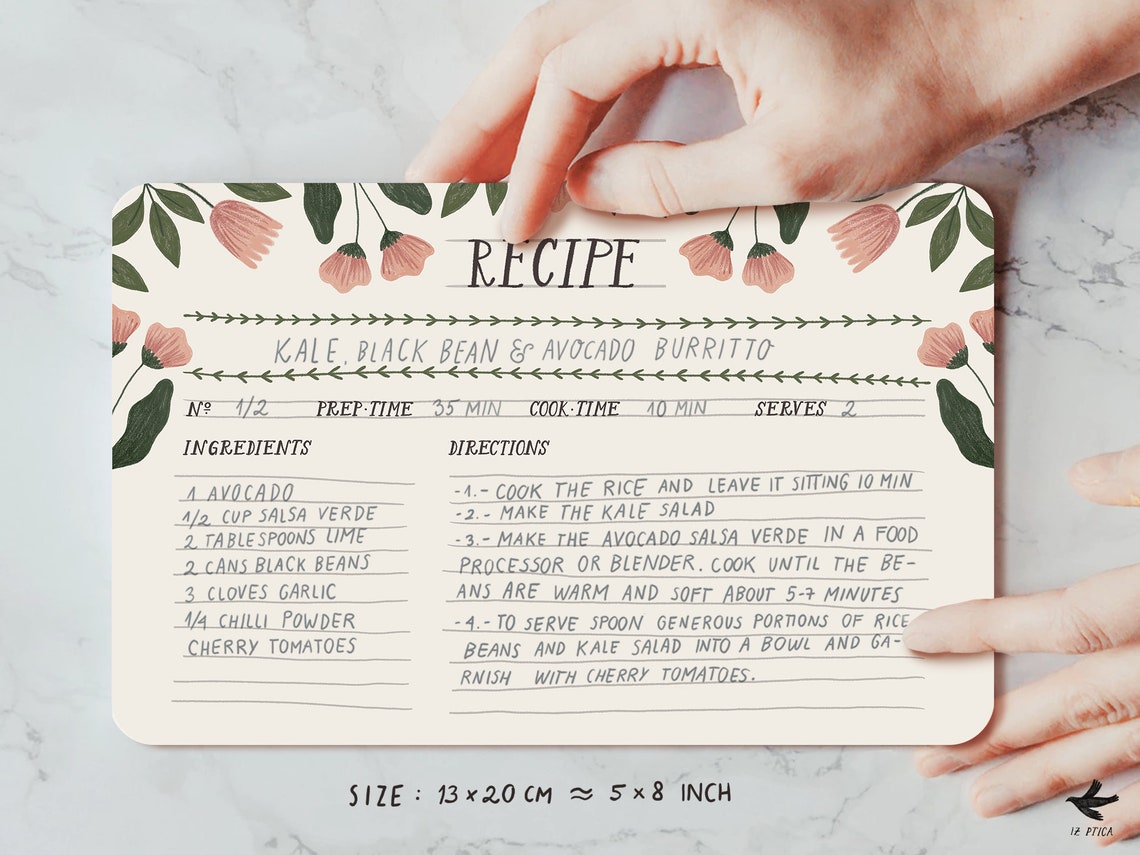 RECIPE
KALE, BLACK BEAN & AVOCADO BURRITTO
Nº 1/2 PREP·TIME 35 MIN COOK·TIME 10 MIN SERVES 2
INGREDIENTS
1 AVOCADO
1/2 CUP SALSA VERDE
2 TABLESPOONS LIME
2 CANS BLACK BEANS
3 CLOVES GARLIC
1/4 CHILLI POWDER
CHERRY TOMATOES
DIRECTIONS
-1.- COOK THE RICE AND LEAVE IT SITTING 10 MIN
-2.- MAKE THE KALE SALAD
-3.- MAKE THE AVOCADO SALSA VERDE IN A FOOD
PROCESSOR OR BLENDER. COOK UNTIL THE BE-
ANS ARE WARM AND SOFT ABOUT 5-7 MINUTES
-4.- TO SERVE SPOON GENEROUS PORTIONS OF RICE
BEANS AND KALE SALAD INTO A BOWL AND GA-
RNISH WITH CHERRY TOMATOES.
SIZE : 13 × 20 CM ≈ 5 × 8 INCH
IZ PTICA